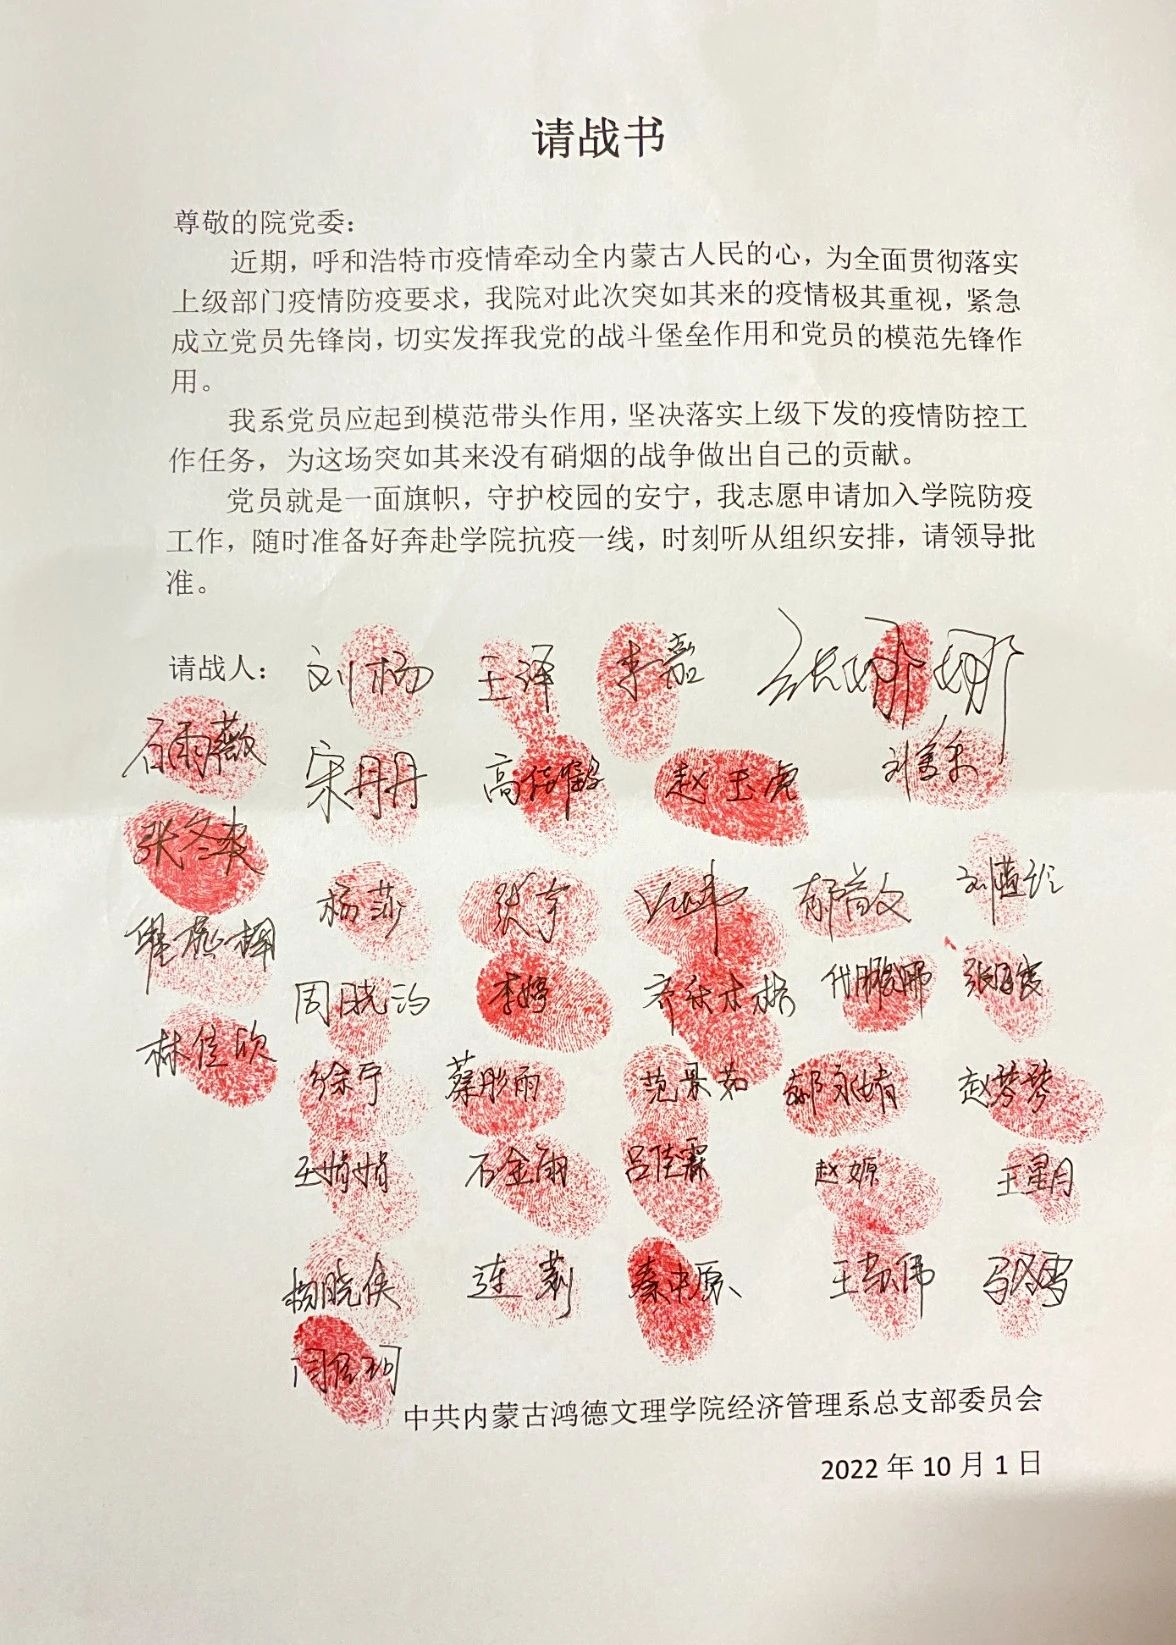 请战书
尊敬的院党委：
近期，呼和浩特市疫情牵动全内蒙古人民的心，为全面贯彻落实
上级部门疫情防疫要求，我院对此次突如其来的疫情极其重视，紧急
成立党员先锋岗，切实发挥我党的战斗堡垒作用和党员的模范先锋作
用。
我系党员应起到模范带头作用，坚决落实上级下发的疫情防控工
作任务，为这场突如其来没有硝烟的战争做出自己的贡献。
党员就是一面旗帜，守护校园的安宁，我志愿申请加入学院防疫
工作，随时准备好奔赴学院抗疫一线，时刻听从组织安排，请领导批
准。
请战人： 刘杨 王泽 李嘉 张娜娜
石雨薇 宋丹丹 赵玉虎
张冬爽 杨莎 张宇
李婷
林佳欣
徐宁 蔡彤雨 范果茹 郝永婧 赵梦琴
王娟娟 石金雨 吕佳霖 赵嫄 王星月
杨晓侠 连莉 秦中原
中共内蒙古鸿德文理学院经济管理系总支部委员会
2022 年 10 月 1 日